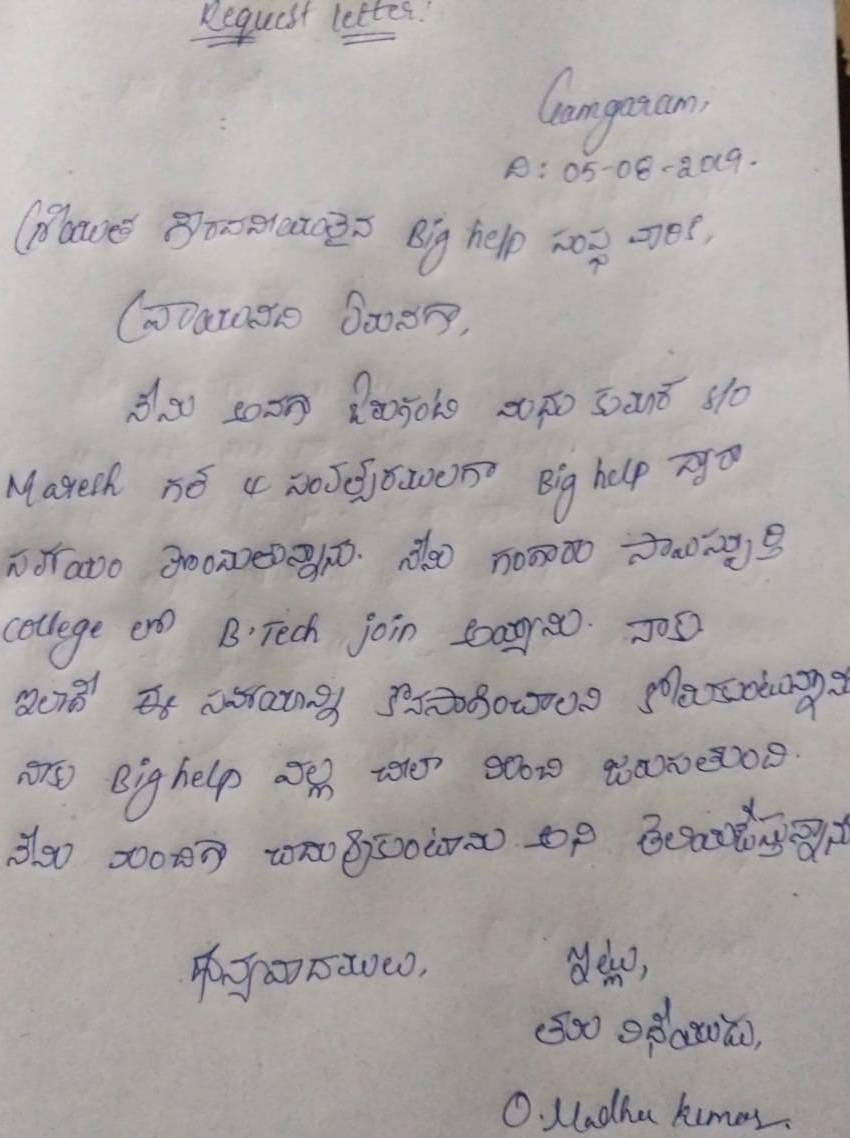 Request letter:
Gamgaram,
ది: 05-08-2019.
గౌరవనీయులైన Big help సంస్థ వారికి,
వ్రాయునది ఏమనగా,
నేను అనగా మధు కుమార్ s/o
Maresh గత 4 సంవత్సరములుగా Big help ద్వారా
సహాయం పొందుతున్నాను. నేను గంగారం
college లో B.Tech join అయ్యాను. నాకు
ఇలాగే ఈ సహాయాన్ని కొనసాగించాలని కోరుకుంటున్నాను
నాకు Big help వల్ల చాలా మంచి జరుగుతుంది.
నేను మంచిగా చదువుకుంటాను అని తెలియజేస్తున్నాను
ధన్యవాదములు, ఇట్లు,
తమ విధేయుడు,
O. Madhu kumar.